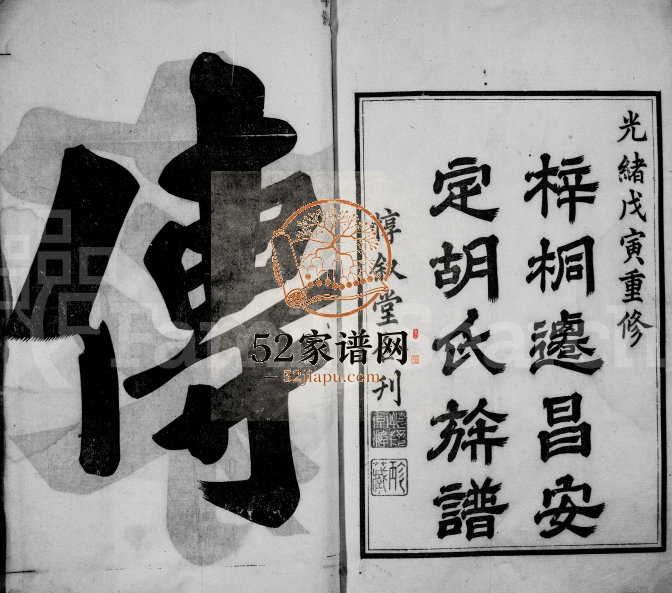 光緒戊寅重修
梓桐遷昌安
定胡氏族譜
惇敘堂 刊
傳
52家谱网
52jiapu.com